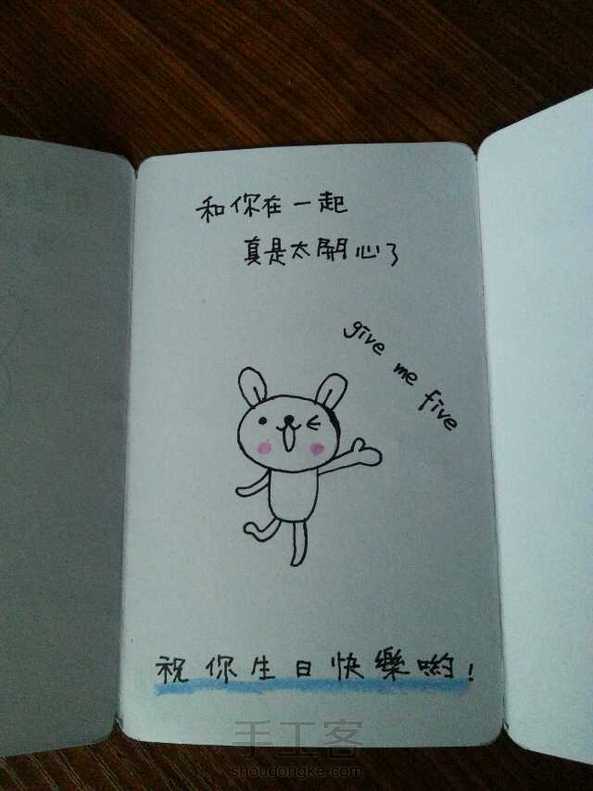 和你在一起
真是太開心了
give me five
祝你生日快樂喲!
手工客
shoudongke.com